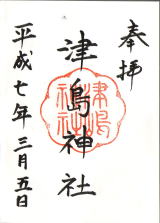 奉拝
津島神社
津島
神社
平成七年三月五日